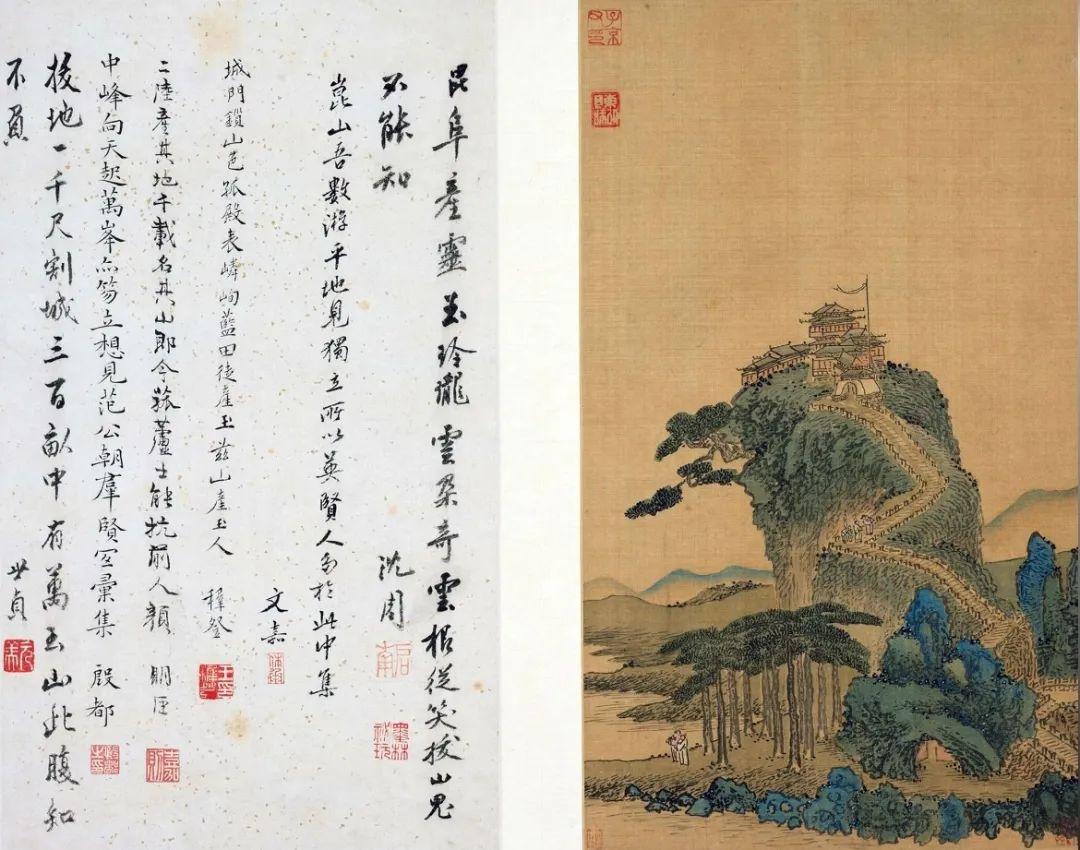 昆阜產靈玉玲瓏雲朶奇雲根從笑拔山鬼
不能知 沈周
墨林祕玩
崑山吾數游平地見獨立所以英賢人多於此中集
文嘉
休承
城門鎖山色孤殿表嶙峋藍田徒產玉茲山產玉人 穉登
二陸產其地千載名其山即今菰蘆士能抗前人顏 明臣
嘉則
中峰向天起萬峯亦笏立想見范公朝羣賢宛彙集 殷都
拔地一千尺割城三百畝中有萬玉山此腹知
不負 世貞
元美
子京父印